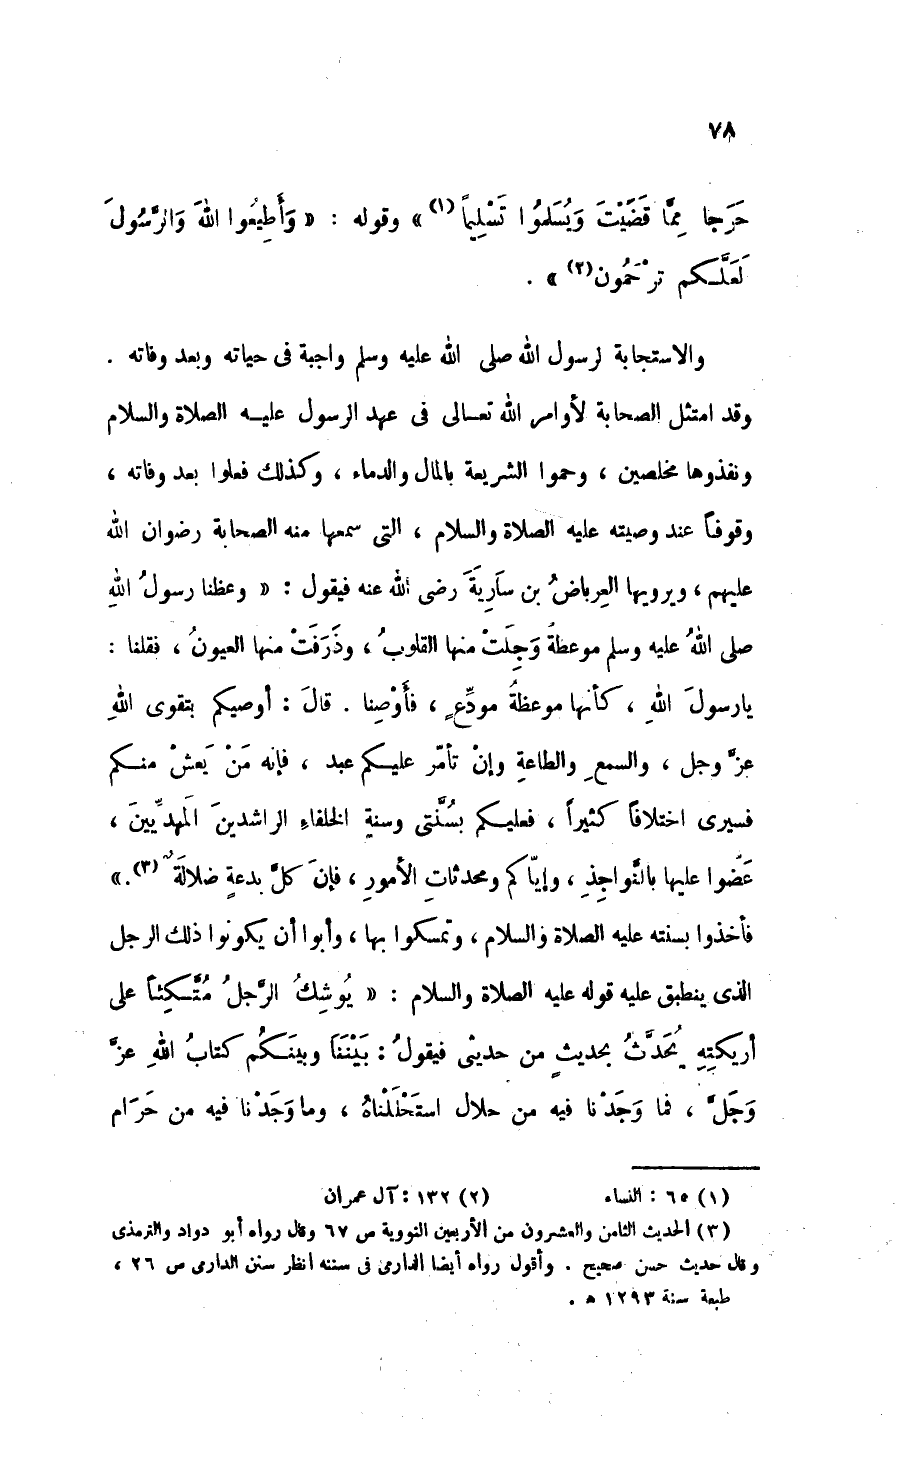 ٧٨
حَرَجا مِمَّا قَضَيْتَ وَيُسَلمُوُا تَسْلِيماً(١)» وقوله : « وَأَطِيعُوا اللهَ وَالرَّسُولَ
لَعَلَّـكم ترْحَمُون(٢)» .
والاستجابة لرسول الله صلى الله عليه وسلم واجبة فى حياته وبعد وفاته .
وقد امتثل الصحابة لأوامر الله تعـالى فى عهد الرسول عليـه الصلاة والسلام
ونفذوها مخلصين ، وحموا الشريعة بالمال والدماء ، وكذلك فعلوا بعد وفاته ،
وقوفاً عند وصيته عليه الصلاة والسلام ، التى سمعها منه الصحابة رضوان الله
عليهم ، ويرويها العِرباضُ بن سَارِيَةَ رضى الله عنه فيقول : « وعظنا رسولُ اللهِ
صلى اللهُ عليه وسلم موعظةً وَجِلَتْ منها القلوبُ ، وذَرَفَتْ منها العيونُ ، فقلنا :
يارسولَ اللهِ ، كأنها موعظةُ مودِّعٍ ، فأَوْصِنا . قالَ : أوصيكم بتقوى اللهِ
عزَّ وجل ، والسمعِ والطاعةِ وإنْ تأمّر عليـكم عبد ، فإنه مَنْ يَعشْ منـكم
فسيرى اختلافاً كثيراً ، فعليـكم بسُنَّتى وسنةِ الخلفاءِ الراشدينَ المَهدِيِّينَ ،
عَضُّوا عليها بالنَّواجِذِ ، وإيّاكم ومحدثاتِ الأمورِ ، فإنَ كلَّ بدعةٍ ضلالَةٌ(٣).»
فأخذوا بسنته عليه الصلاة والسلام ، وتمسكوا بها ، وأبوا أن يكونوا ذلك الرجل
الذى ينطبق عليه قوله عليه الصلاة والسلام : « يُوشِكُ الرَّجلُ مُتَّـكِئاً على
أريكتِهِ يُحَدَّثُ بحديثٍ من حديثى فيقولُ : بَيْنَنَا وبينَـكُم كتابُ اللهِ عزَّ
وَجَلَّ ، فما وَجَدْنا فيه من حلال استَحْلَلْناهُ ، وما وَجَدْنا فيه من حَرَام
(١) ٦٥ : النساء (٢) ١٣٢ : آل عمران
(٣) الحديث الثامن والعشرون من الأربعين النووية ص ٦٧ وقال رواه أبو دواد والترمذى
وقال حديث حسن صحيح . وأقول رواه أيضا الدارمى فى سننه انظر سنن الدارمى ص ٢٦ ،
طبعة سنة ١٢٩٣ ه .